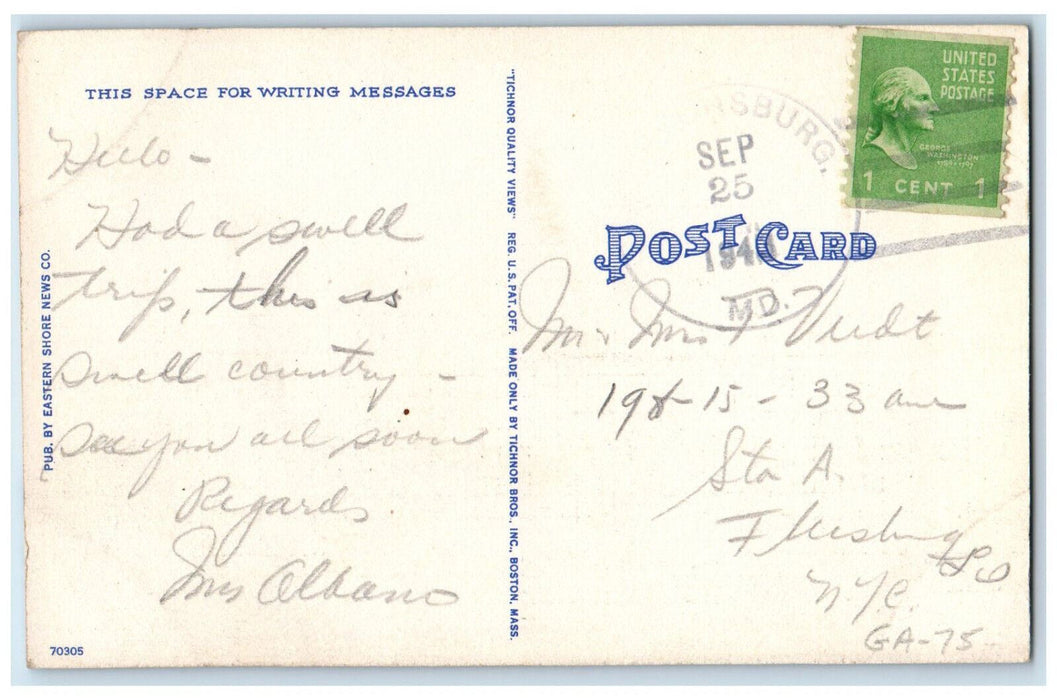 THIS SPACE FOR WRITING MESSAGES
Hello -
Had a swell
trip, this is
swell country -
see you all soon
Regards.
Mrs Albano
PUB. BY EASTERN SHORE NEWS CO.
70305
"TICHNOR QUALITY VIEWS" REG. U.S. PAT. OFF. MADE ONLY BY TICHNOR BROS., INC., BOSTON, MASS.
UNITED
STATES
POSTAGE
GEORGE
WASHINGTON
1789-1797
1 CENT 1
RSBURG.
SEP
25
MD.
POST CARD
Mr & Mrs
15 - 33 ave
Sta A.
Flushing
N.Y.C.
GA-75